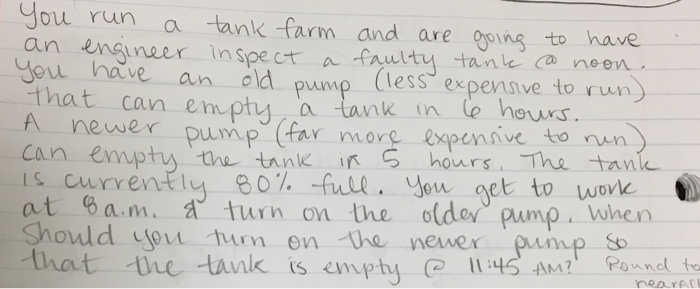 You run a tank farm and are going to have
an engineer inspect a faulty tank @ noon.
You have an old pump (less expensive to run)
that can empty a tank in 6 hours.
A newer pump (far more expensive to run)
can empty the tank in 5 hours. The tank
is currently 80% full. You get to work
at 8 a.m. & turn on the older pump. When
should you turn on the newer pump so
that the tank is empty @ 11:45 AM? Round to
nearest